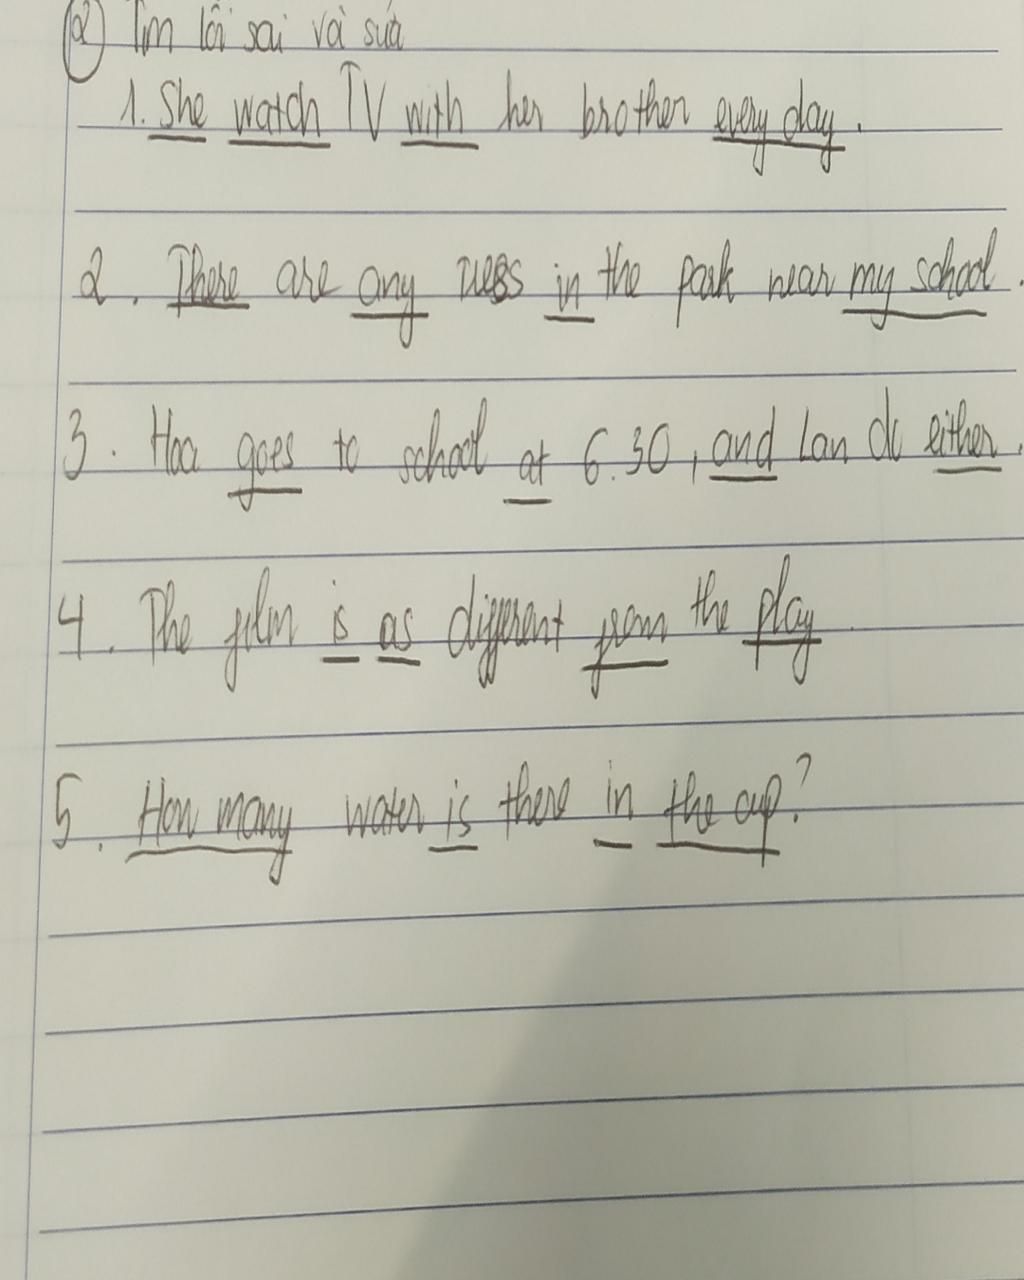 ② Tìm lỗi sai và sửa
1. She watch TV with her brother every day.
2. There are any trees in the park near my school.
3. Hoa goes to school at 6.30, and Lan do either.
4. The film is as different from the play
5. How many water is there in the cup?